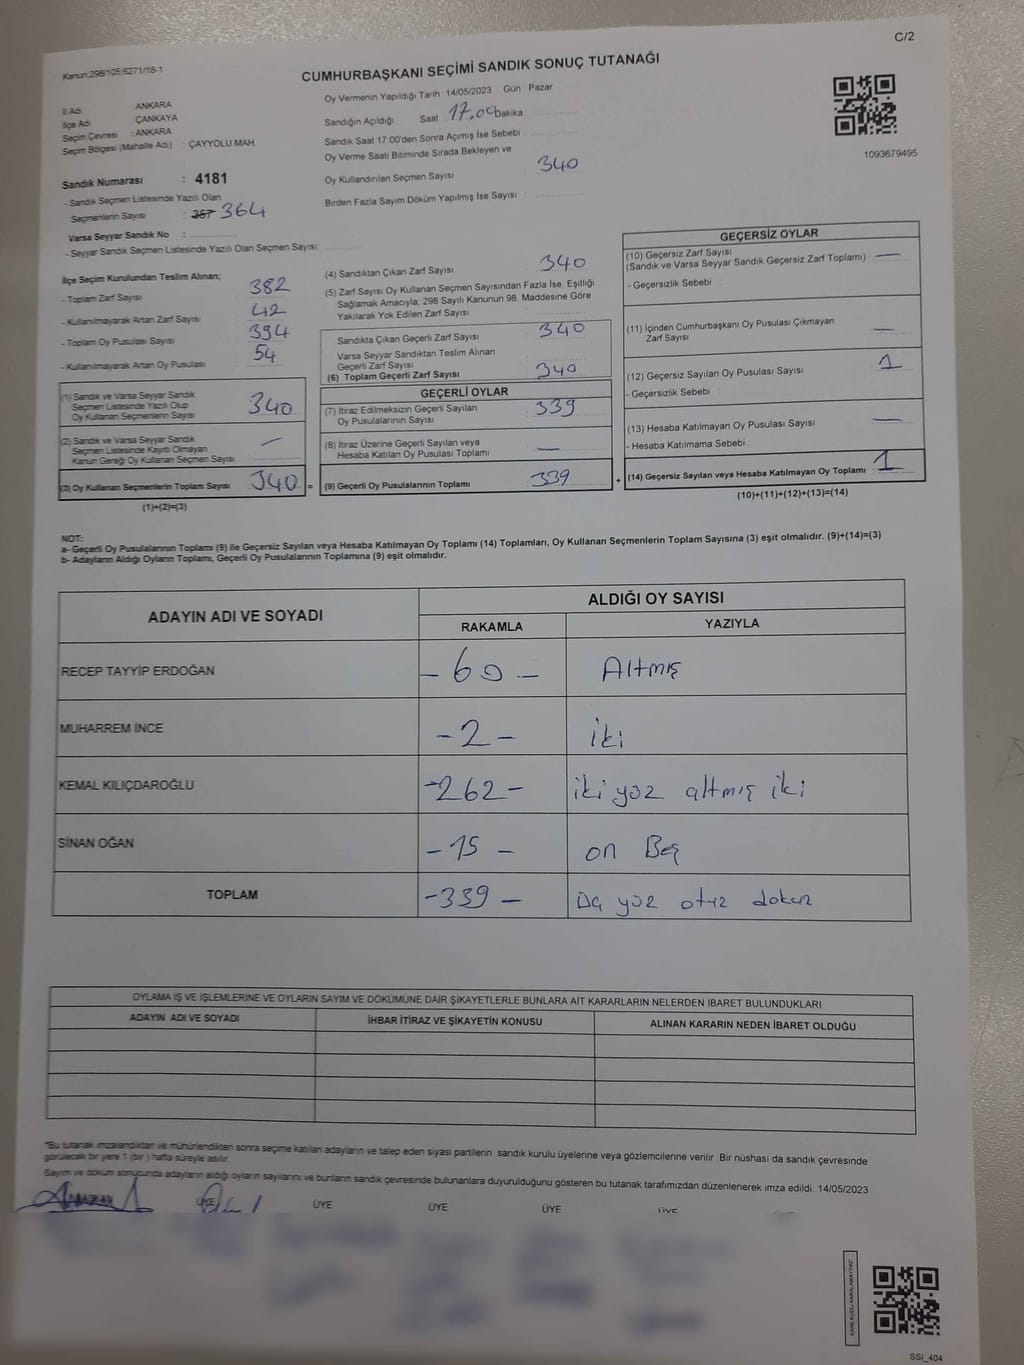 C/2
Kanun:298/105;6271/18-1
CUMHURBAŞKANI SEÇİMİ SANDIK SONUÇ TUTANAĞI
İl Adı : ANKARA
İlçe Adı : ÇANKAYA
Seçim Çevresi : ANKARA
Seçim Bölgesi (Mahalle Adı) : ÇAYYOLU MAH.
Sandık Numarası : 4181
- Sandık Seçmen Listesinde Yazılı Olan
Seçmenlerin Sayısı : 357 364
Varsa Seyyar Sandık No :
- Seyyar Sandık Seçmen Listesinde Yazılı Olan Seçmen Sayısı:
Oy Vermenin Yapıldığı Tarih 14/05/2023 Gün Pazar
Sandığın Açıldığı Saat 17,00 Dakika
Sandık Saat 17:00'den Sonra Açımış İse Sebebi :
Oy Verme Saati Bitiminde Sırada Bekleyen ve
Oy Kullandırılan Seçmen Sayısı : 340
Birden Fazla Sayım Döküm Yapılmış İse Sayısı :
1093679495
İlçe Seçim Kurulundan Teslim Alınan;
- Toplam Zarf Sayısı : 382
- Kullanılmayarak Artan Zarf Sayısı : 42
- Toplam Oy Pusulası Sayısı : 394
- Kullanılmayarak Artan Oy Pusulası : 54
(1) Sandık ve Varsa Seyyar Sandık
Seçmen Listesinde Yazılı Olup
Oy Kullanan Seçmenlerin Sayısı : 340
(2) Sandık ve Varsa Seyyar Sandık
Seçmen Listesinde Kayıtlı Olmayan
Kanun Gereği Oy Kullanan Seçmen Sayısı : —
(3) Oy Kullanan Seçmenlerin Toplam Sayısı 340 =
(1)+(2)=(3)
(4) Sandıktan Çıkan Zarf Sayısı : 340
(5) Zarf Sayısı Oy Kullanan Seçmen Sayısından Fazla İse, Eşitliği
Sağlamak Amacıyla, 298 Sayılı Kanunun 98. Maddesine Göre
Yakılarak Yok Edilen Zarf Sayısı :
Sandıkta Çıkan Geçerli Zarf Sayısı : 340
Varsa Seyyar Sandıktan Teslim Alınan
Geçerli Zarf Sayısı :
(6) Toplam Geçerli Zarf Sayısı : 340
GEÇERLİ OYLAR
(7) İtiraz Edilmeksizin Geçerli Sayılan
Oy Pusulalarının Sayısı : 339
(8) İtiraz Üzerine Geçerli Sayılan veya
Hesaba Katılan Oy Pusulası Toplamı : —
(9) Geçerli Oy Pusulalarının Toplamı : 339 +
GEÇERSİZ OYLAR
(10) Geçersiz Zarf Sayısı
(Sandık ve Varsa Seyyar Sandık Geçersiz Zarf Toplamı) : —
- Geçersizlik Sebebi :
(11) İçinden Cumhurbaşkanı Oy Pusulası Çıkmayan
Zarf Sayısı : —
(12) Geçersiz Sayılan Oy Pusulası Sayısı : 1
- Geçersizlik Sebebi :
(13) Hesaba Katılmayan Oy Pusulası Sayısı : —
- Hesaba Katılmama Sebebi :
(14) Geçersiz Sayılan veya Hesaba Katılmayan Oy Toplamı : 1
(10)+(11)+(12)+(13)=(14)
NOT:
a- Geçerli Oy Pusulalarının Toplamı (9) ile Geçersiz Sayılan veya Hesaba Katılmayan Oy Toplamı (14) Toplamları, Oy Kullanan Seçmenlerin Toplam Sayısına (3) eşit olmalıdır. (9)+(14)=(3)
b- Adayların Aldığı Oyların Toplamı, Geçerli Oy Pusulalarının Toplamına (9) eşit olmalıdır.
ADAYIN ADI VE SOYADI ALDIĞI OY SAYISI
RAKAMLA YAZIYLA
RECEP TAYYİP ERDOĞAN - 60 - Altmış
MUHARREM İNCE - 2 - iki
KEMAL KILIÇDAROĞLU - 262 - iki yüz altmış iki
SİNAN OĞAN - 15 - on Beş
TOPLAM - 339 - Üç yüz otuz dokuz
OYLAMA İŞ VE İŞLEMLERİNE VE OYLARIN SAYIM VE DÖKÜMÜNE DAİR ŞİKAYETLERLE BUNLARA AİT KARARLARIN NELERDEN İBARET BULUNDUKLARI
ADAYIN ADI VE SOYADI İHBAR İTİRAZ VE ŞİKAYETİN KONUSU ALINAN KARARIN NEDEN İBARET OLDUĞU
"Bu tutanak imzalandıktan ve mühürlendikten sonra seçime katılan adayların ve talep eden siyasi partilerin sandık kurulu üyelerine veya gözlemcilerine verilir. Bir nüshası da sandık çevresinde
görülecek bir yere 1 (bir) hafta süreyle asılır.
Sayım ve döküm sonucunda adayların aldığı oyların sayılarını ve bunların sandık çevresinde bulunanlara duyurulduğunu gösteren bu tutanak tarafımızdan düzenlenerek imza edildi. 14/05/2023
BAŞKAN ÜYE ÜYE ÜYE ÜYE ÜYE
KARE KODU KARALAMAYINIZ
SSI_404